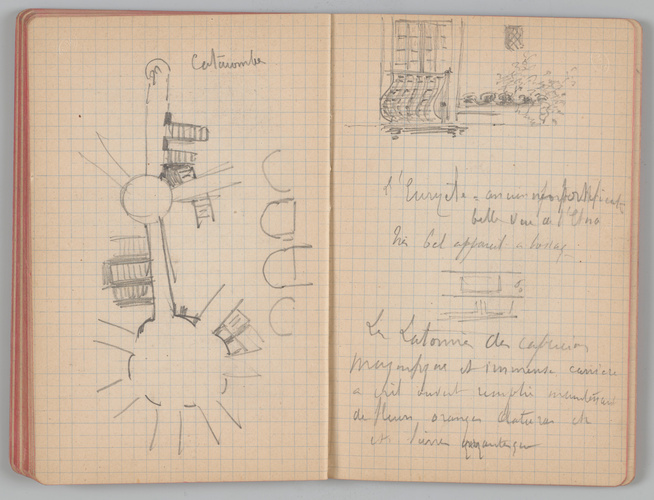 Catacombes
l'Euryele = ancienne fortificat
belle vue de l'Etna
très bel appareil à bossage
Les Latomies des capucins
magnifique et immense carrière
à ciel ouvert remplie maintenant
de fleurs oranges daturas et
et lierres gigantesques